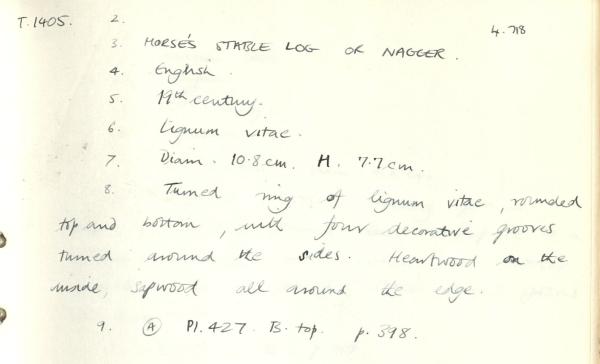 T.1405. 2.
4.718
3. HORSE'S STABLE LOG OR NAGGER.
4. English.
5. 19th century.
6. Lignum vitae.
7. Diam. 10.8 cm. H. 7.7 cm.
8. Turned ring of lignum vitae, rounded
top and bottom, with four decorative grooves
turned around the sides. Heartwood on the
inside, sapwood all around the edge.
9. A Pl. 427. B. top. p. 398.